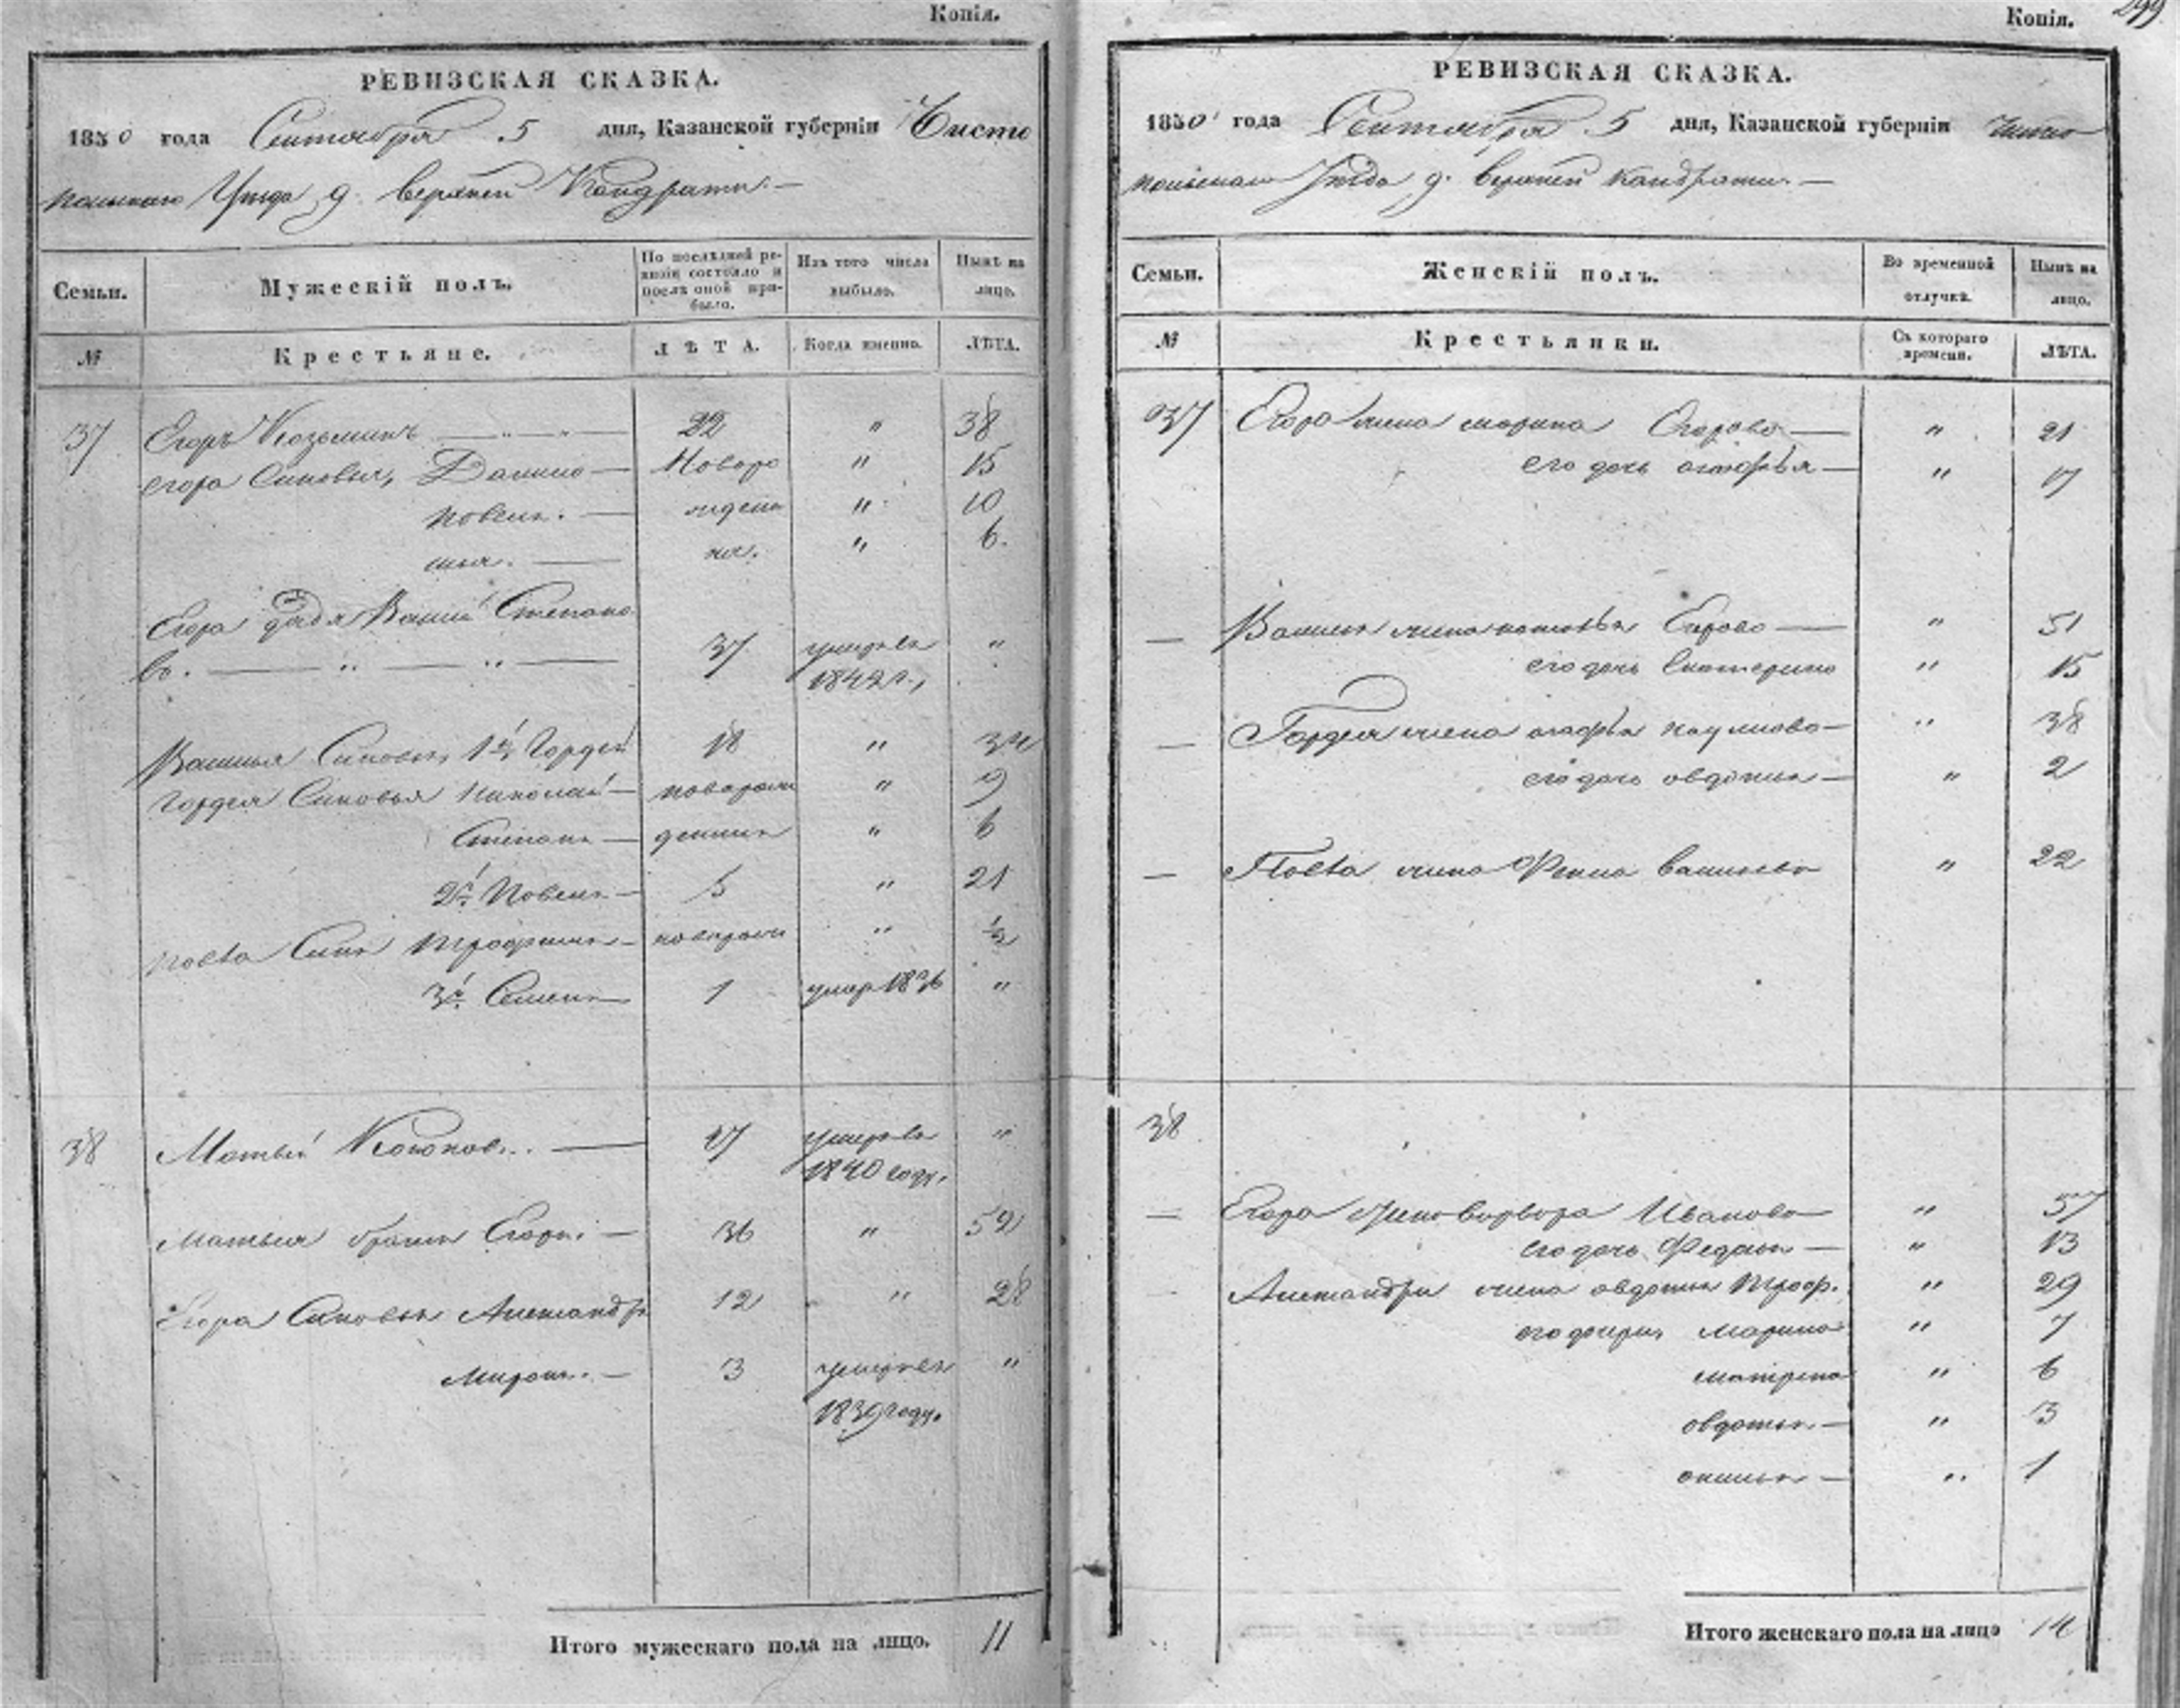 Копія.
РЕВИЗСКАЯ СКАЗКА.
1850 года Сентября 5 дня, Казанской губерніи Чисто
польскаго Уѣзда д. Верхней Кандраты. —
Семьи.
Мужескій полъ.
По послѣдней ре-
визіи состояло и
послѣ оной при-
было.
Изъ того числа
выбыло.
Нынѣ на
лицо.
№
Крестьяне.
ЛѢТА.
Когда именно.
ЛѢТА.
37 Егоръ Козьминъ — " — " — 22 " 38
Егора Сыновья, Данило — Новоро " 15
Павелъ. — жден " 10
Илья. — ны. " 6.
Егора дядя Василій Степано
въ. — " — " — 37 умеръ въ "
1842 г.,
Василья Сыновья, 1й Гордей 18 " 34
Гордея Сыновья Николай — новорож " 9
Степанъ — денныя " 6
2й. Павелъ — 5 " 21
Павла Сынъ Трофимъ — новорож " ½
3й. Семенъ — 1 умер 1836 "
38 Матвѣй — 17 умеръ въ "
1840 году.
Матвѣя братъ Егоръ. — 36 " 52
Егора Сыновья Александръ 12 " 28
Миронъ. — 3 умеръ въ "
1839 году.
Итого мужескаго пола на лицо. 11
Копія. 299
РЕВИЗСКАЯ СКАЗКА.
1850 года Сентября 5 дня, Казанской губерніи Чисто
польскаго Уѣзда д. Верхней Кандраты. —
Семьи.
Женскій полъ.
Во временной
отлучкѣ.
Нынѣ на
лицо.
№
Крестьянки.
Съ котораго
времени.
ЛѢТА.
37 Егора жена Марина Егорова — " 21
его дочь Агафья — " 17
— Василья жена Наталья — " 51
его дочь Екатерина " 15
— Гордея жена Агафья Наумова — " 38
его дочь Авдотья — " 2
— Павла жена Фекла Васильева " 22
38
— Егора жена Варвара Иванова — " 57
его дочь Федосья — " 13
Александра жена Авдотья Троф. " 29
его дочери, Марина " 7
Матрена " 6
Авдотья. — " 3
Аксинья — " 1
Итого женскаго пола на лицо 14